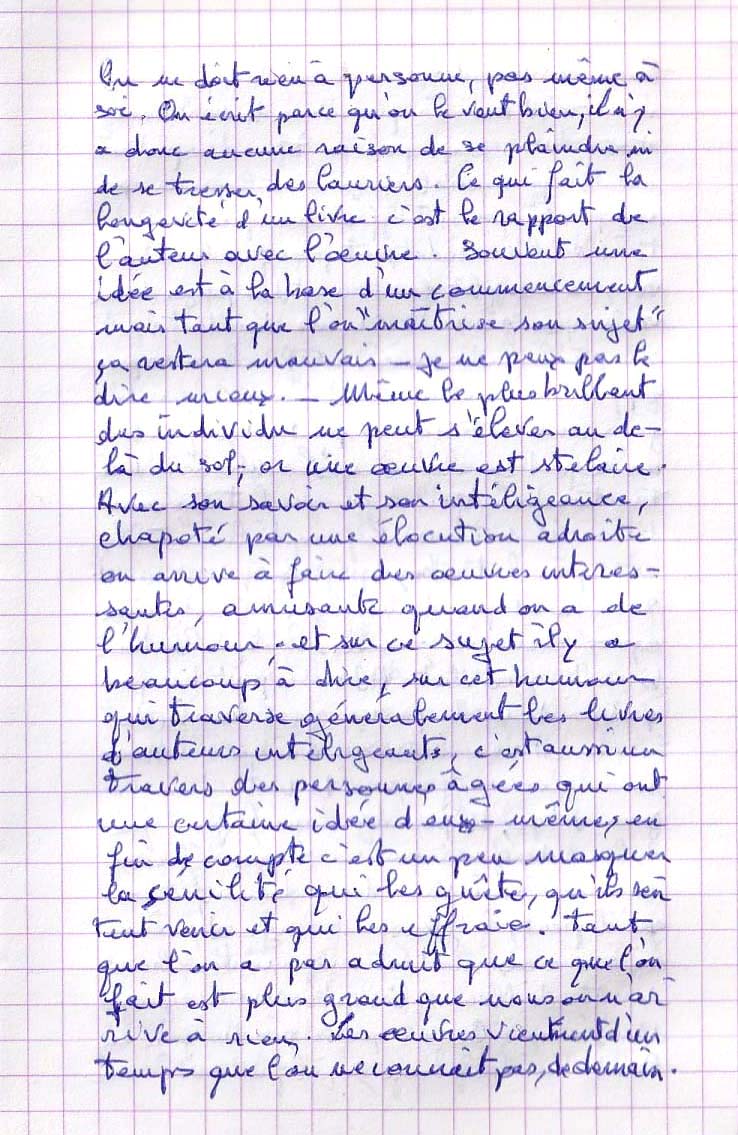 On ne doit rien à personne, pas même à
soi. On écrit parce qu'on le veut bien, il n'y
a donc aucune raison de se plaindre ni
de se tresser des lauriers. Ce qui fait la
longévité d'un livre c'est le rapport de
l'auteur avec l'oeuvre. Souvent une
idée est à la base d'un commencement
mais tant que l'on "maîtrise son sujet"
ça restera mauvais – je ne peux pas le
dire mieux. – Même le plus brillant
des individu ne peut s'élever au de-
là du sol, or une oeuvre est stelaire.
Avec son savoir et son intéligeance,
chapoté par une élocution adroite
on arrive à faire des oeuvres interes-
santes, amusante quand on a de
l'humour, et sur ce sujet il y a
beaucoup à dire, sur cet humour
qui traverse généralement les livres
d'auteurs intelligeants, c'est aussi un
travers des personnes âgées qui ont
une certaine idée d'eux-mêmes, en
fin de compte c'est un peu masquer
la sénilité qui les guête, qu'ils sen
tent venir et qui les effraie. Tant
que l'on a pas admit que ce que l'on
fait est plus grand que nous on n'ar
rive à rien. Les oeuvres viennent d'un
temps que l'on ne connait pas, de demain.